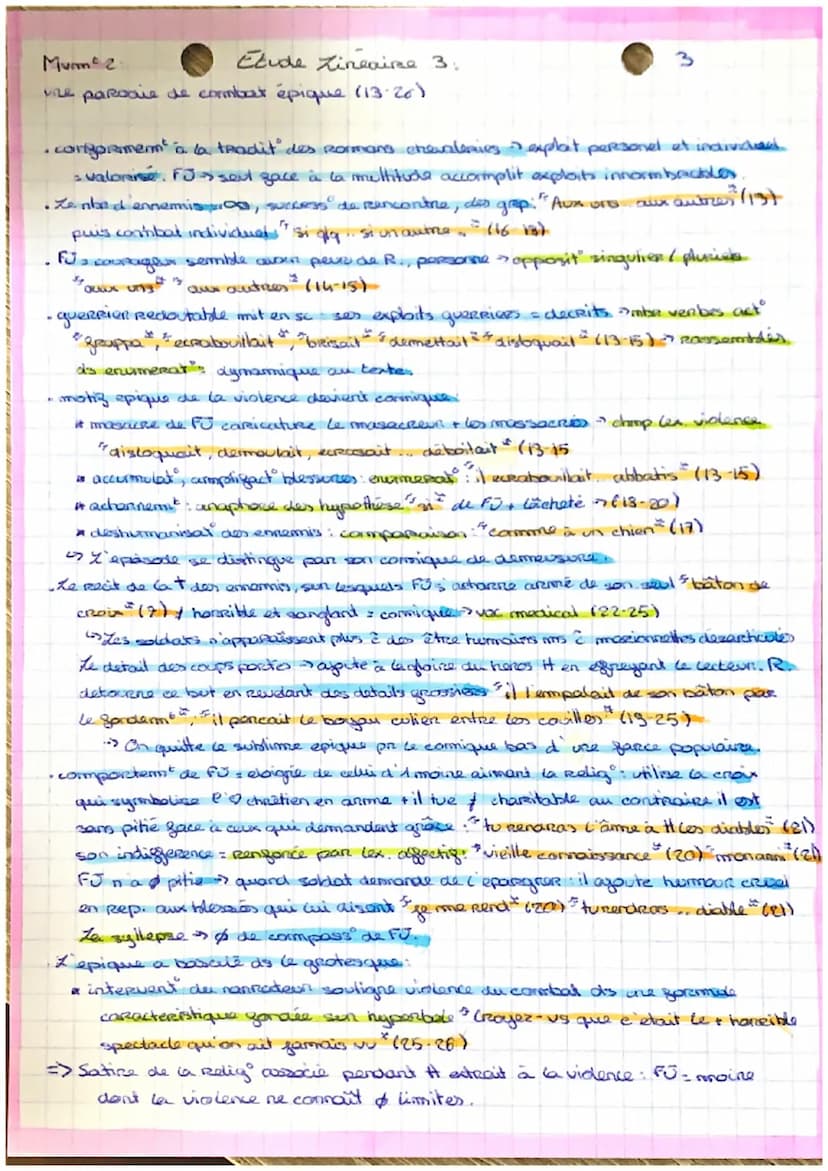 Mvmt 2: Etude Linéaire 3: 3
une parodie de combat épique (13-26)
• conformemt à la tradit° des romans chevaleries → exploit personel et individuel
= valorisé. FJ → seul face à la multitude accomplit exploits innombrables.
• Le nbe d'ennemis, success° de rencontre, des grp: "Aux uns.. aux autres" (13)
puis combat individuel "si qlq.. si un autre.." (16-18)
• FJ = courageux semble avoir peur de R., personne → opposit° singulier / pluriels
"aux uns" "aux autres" (14-15)
• guerrier redoutable mit en sc ses exploits guerriers = decrits → mbr verbes act°
"frappa", "ecrabouillait", "brisait" "demettait" "disloquait" (13-15) → rassemblés
ds enumerat°: dynamique au texte.
• motif epique de la violence devient comique:
* masacre de FJ caricature le masacreur + les massacrés → chmp lex. violence
"disloquait, demoulait, ecrasait... déboitait" (13-15
* accumulat°, amplificat° blessures: enumerat°: il ecrabouillait.. abbatis" (13-15)
* acharnemt: anaphore des hypothèse "si" de FJ + lâcheté → (18-20)
* deshumanisat° des ennemis: comparaison: "comme à un chien" (17)
↳ L'episode se distingue par son comique de demeusure.
• Le recit de la † des ennemis, sur lesquels FJ s'acharne armé de son seul "bâton de
croix" (7) horrible et sanglant = comique → voc medical (22-25)
↳ Les soldats n'apparaissent plus c des être humains ms c marionnettes desarticulés
Le detail des coups portés → ajoute à la gloire du heros tt en effreyant le lecteur. R.
detourne ce but en revelant des details grossiers "il l'empalait de son bâton par
le fondemt", "il percait le boyau culier entre les couilles" (19-25)
→ On quitte le sublime epique pr le comique bas d'une farce populaire.
• comportemt de FJ = eloignée de celui d'1 moine aimant la relig°: utilise la croix
qui symbolise l'♡ chretien en arme + il tue ≠ charitable au contraire il est
sans pitié face à ceux qui demandent grâce: "tu rendras l'âme à tt les diables" (21)
son indifference = renforcé par lex. affectif: "vieille connaissance" (20) "mon ami" (21)
FJ n'a ∅ pitié → quand soldat demande de l'epargner: il ajoute humour cruel
en rep. aux blessés qui lui disent "je me rend" (20) "tu rendras .. diable" (21)
La syllepse → ∅ de compass° de FJ.
• L'epique a basculé ds le grotesque:
* intervent° du narrateur souligne violence du combat ds une formule
caracteristique fondée sur hyperbole "Croyez-vs que c'était le + horrible
spectacle qu'on ait jamais vu" (25-26)
=> Satire de la relig° associé pendant tt extrait à la violence: FJ = moine
dont la violence ne connaît ∅ limites.